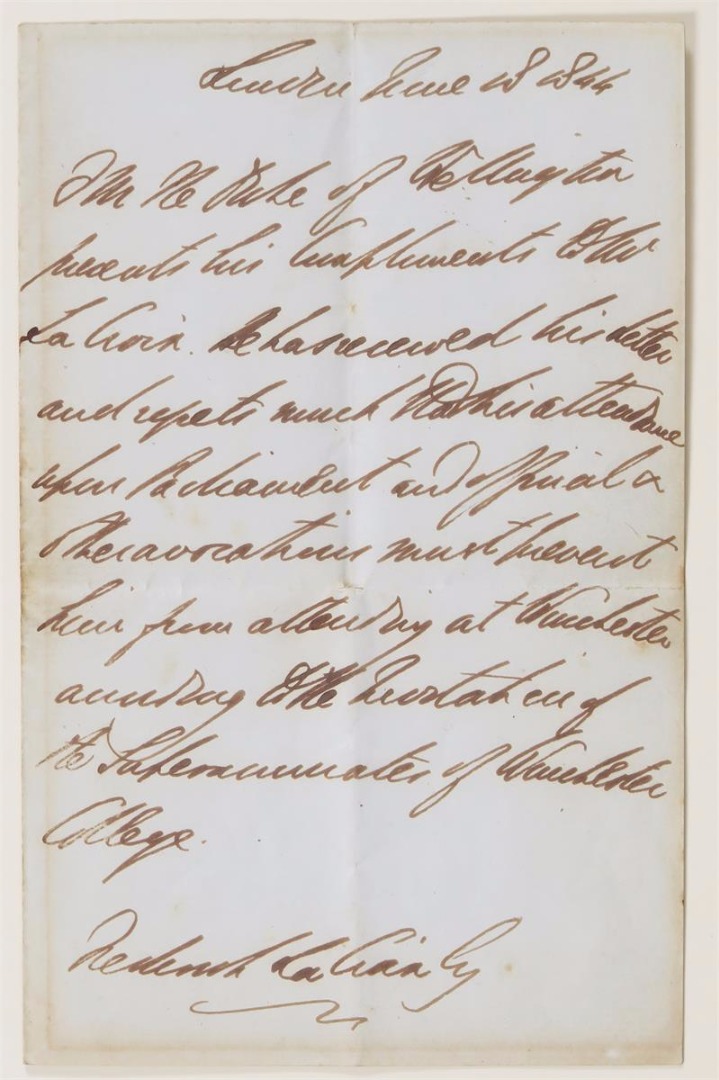 London June 18 1844
F M The Duke of Wellington
presents his Compliments to Mr
La Croix. He has received his Letter
and regrets much that his attendance
upon Parliament and official &
other avocations must prevent
him from attending at Winchester
according to the Invitation of
the Superannuates of Winchester
College.
Frederick La Croix Esq